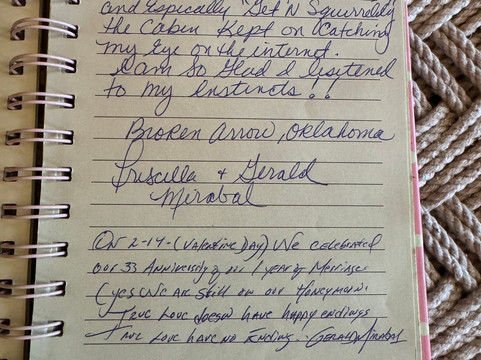 and Espically "Get N Squirrelly"
the Caben Kept on Catching
my Eye on the internet.
I am So Glad I listened
to my Instincts!!
Broken Arrow, Oklahoma
Priscilla & Gerald
Mirabal
On 2-14-(Valentine Day) We celebrated
our 33 Anniversity of our 1 year of Marriage
(yes We Are Still on our Honeymoon.
True Love doesn have happy endings
True Love have no Ending. Gerald Mirabal